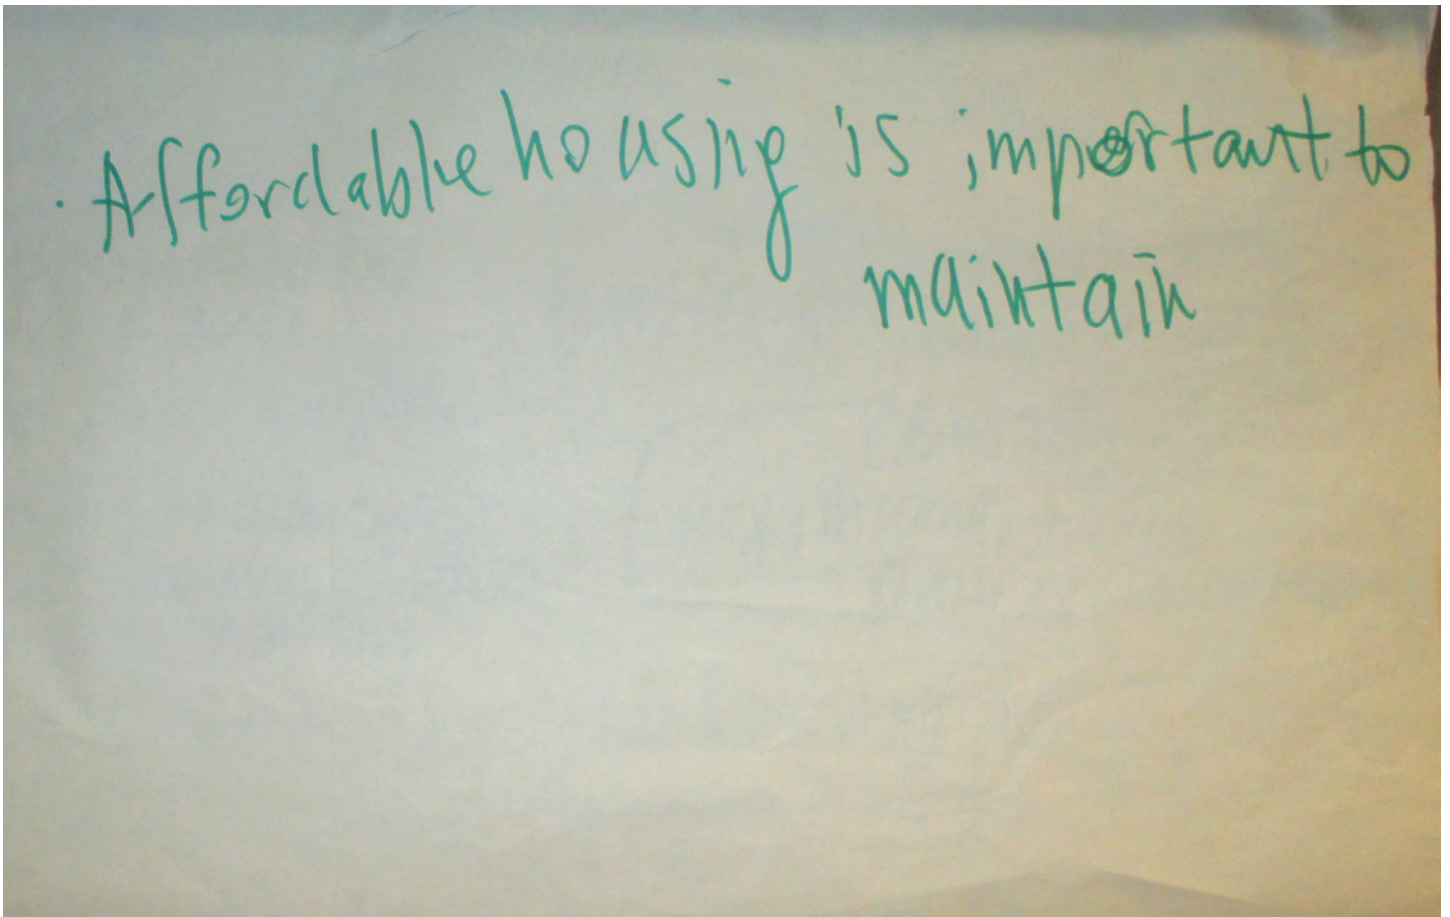 · Affordable housing is important to
maintain